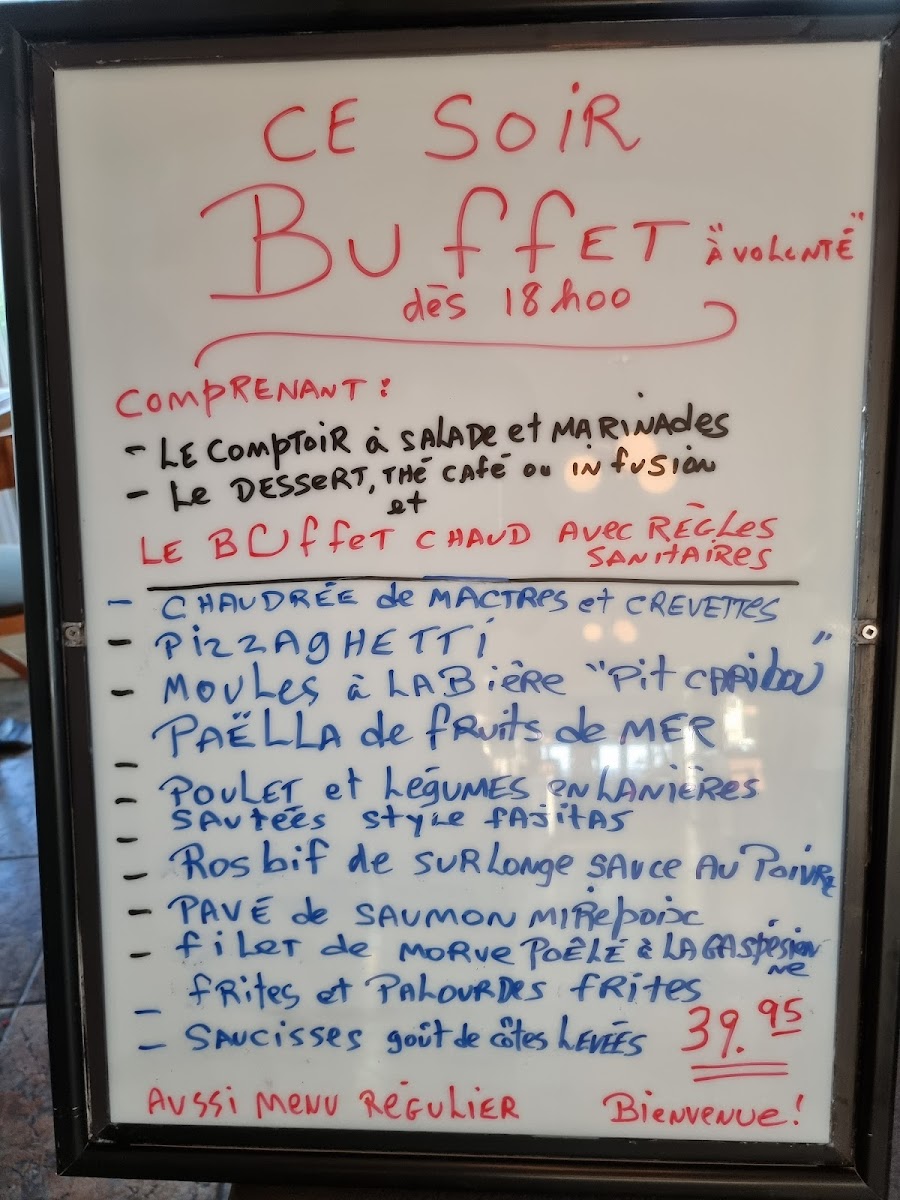 CE SOIR
BuffET "À VOLONTÉ"
dès 18h00
COMPRENANT :
- LE COMPTOIR à SALADE et MARINAdes
- Le DESSERT, THÉ CAFÉ OU INfusion
et
LE BUffET CHAUD AVEC RÈGLES
SANITAIRES
- CHAUDRÉE de MACTRES et CREVETTES
- PIZZAGHETTI
- MOULES à LA Bière "Pit CARibou"
- PAËLLA de fRuits de MER
- POULET et LéGUMES en LANIÈRES
- SAUTÉES STYLE fAJITAS
- Rosbif de SURLONGE SAUCE AU POIVRE
- PAVÉ de SAUMON MIREpoix
- FILET de MORUE POÊLÉ à LA GASpésien
ne
- fRITES et PALOURDES fRITES
- SAUCISSES goût de côtes LEVÉES 39.95
AUSSI MENU RÉGULIER Bienvenue!